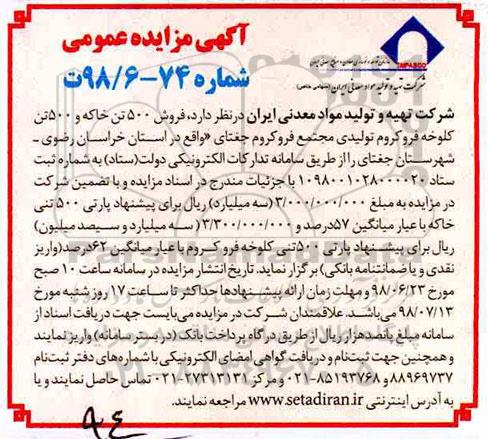 آگهی مزایده عمومی
شماره ۷۴-۹۸/۶ت
IMPASCO
شرکت تهیه و تولید مواد معدنی ایران (سهامی خاص)
شرکت تهیه و تولید مواد معدنی ایران درنظر دارد، فروش ۵۰۰ تن خاکه و ۵۰۰تن
کلوخه فروکروم تولیدی مجتمع فروکروم جغتای «واقع در استان خراسان رضوی ـ
شهرستان جغتای رااز طریق سامانه تدارکات الکترونیکی دولت(ستاد) به شماره ثبت
ستاد ۱۰۹۸۰۰۱۰۲۸۰۰۰۰۲۰ با جزئیات مندرج در اسناد مزایده و با تضمین شرکت
در مزایده به مبلغ ۳/۰۰۰/۰۰۰/۰۰۰ (سه میلیارد) ریال برای پیشنهاد پارتی ۵۰۰ تنی
خاکه با عیار میانگین ۵۷درصد و ۳/۳۰۰/۰۰۰/۰۰۰ (سه میلیارد و سیصد میلیون)
ریال برای پیشنهاد پارتی ۵۰۰تنی کلوخه فرو کروم با عیار میانگین ۶۲درصد(واریز
نقدی و یا ضمانتنامه بانکی) برگزار نماید. تاریخ انتشار مزایده در سامانه ساعت ۱۰ صبح
مورخ ۹۸/۰۶/۲۳ و مهلت زمان ارائه پیشنهادها حداکثر تا ساعت ۱۷ روز شنبه مورخ
۹۸/۰۷/۱۳ می‌باشد. علاقمندان شرکت در مزایده می‌بایست جهت دریافت اسناد از
سامانه مبلغ پانصدهزار ریال از طریق درگاه پرداخت بانک (در بستر سامانه) واریز نمایند
و همچنین جهت ثبت‌نام و دریافت گواهی امضای الکترونیکی با شماره‌های دفتر ثبت‌نام
۸۸۹۶۹۷۳۷ و ۸۵۱۹۳۷۶۸-۰۲۱ و مرکز ۲۷۳۱۳۱۳۱-۰۲۱ تماس حاصل نمایند و یا
به آدرس اینترنتی www.setadiran.ir مراجعه نمایند.
۹۴